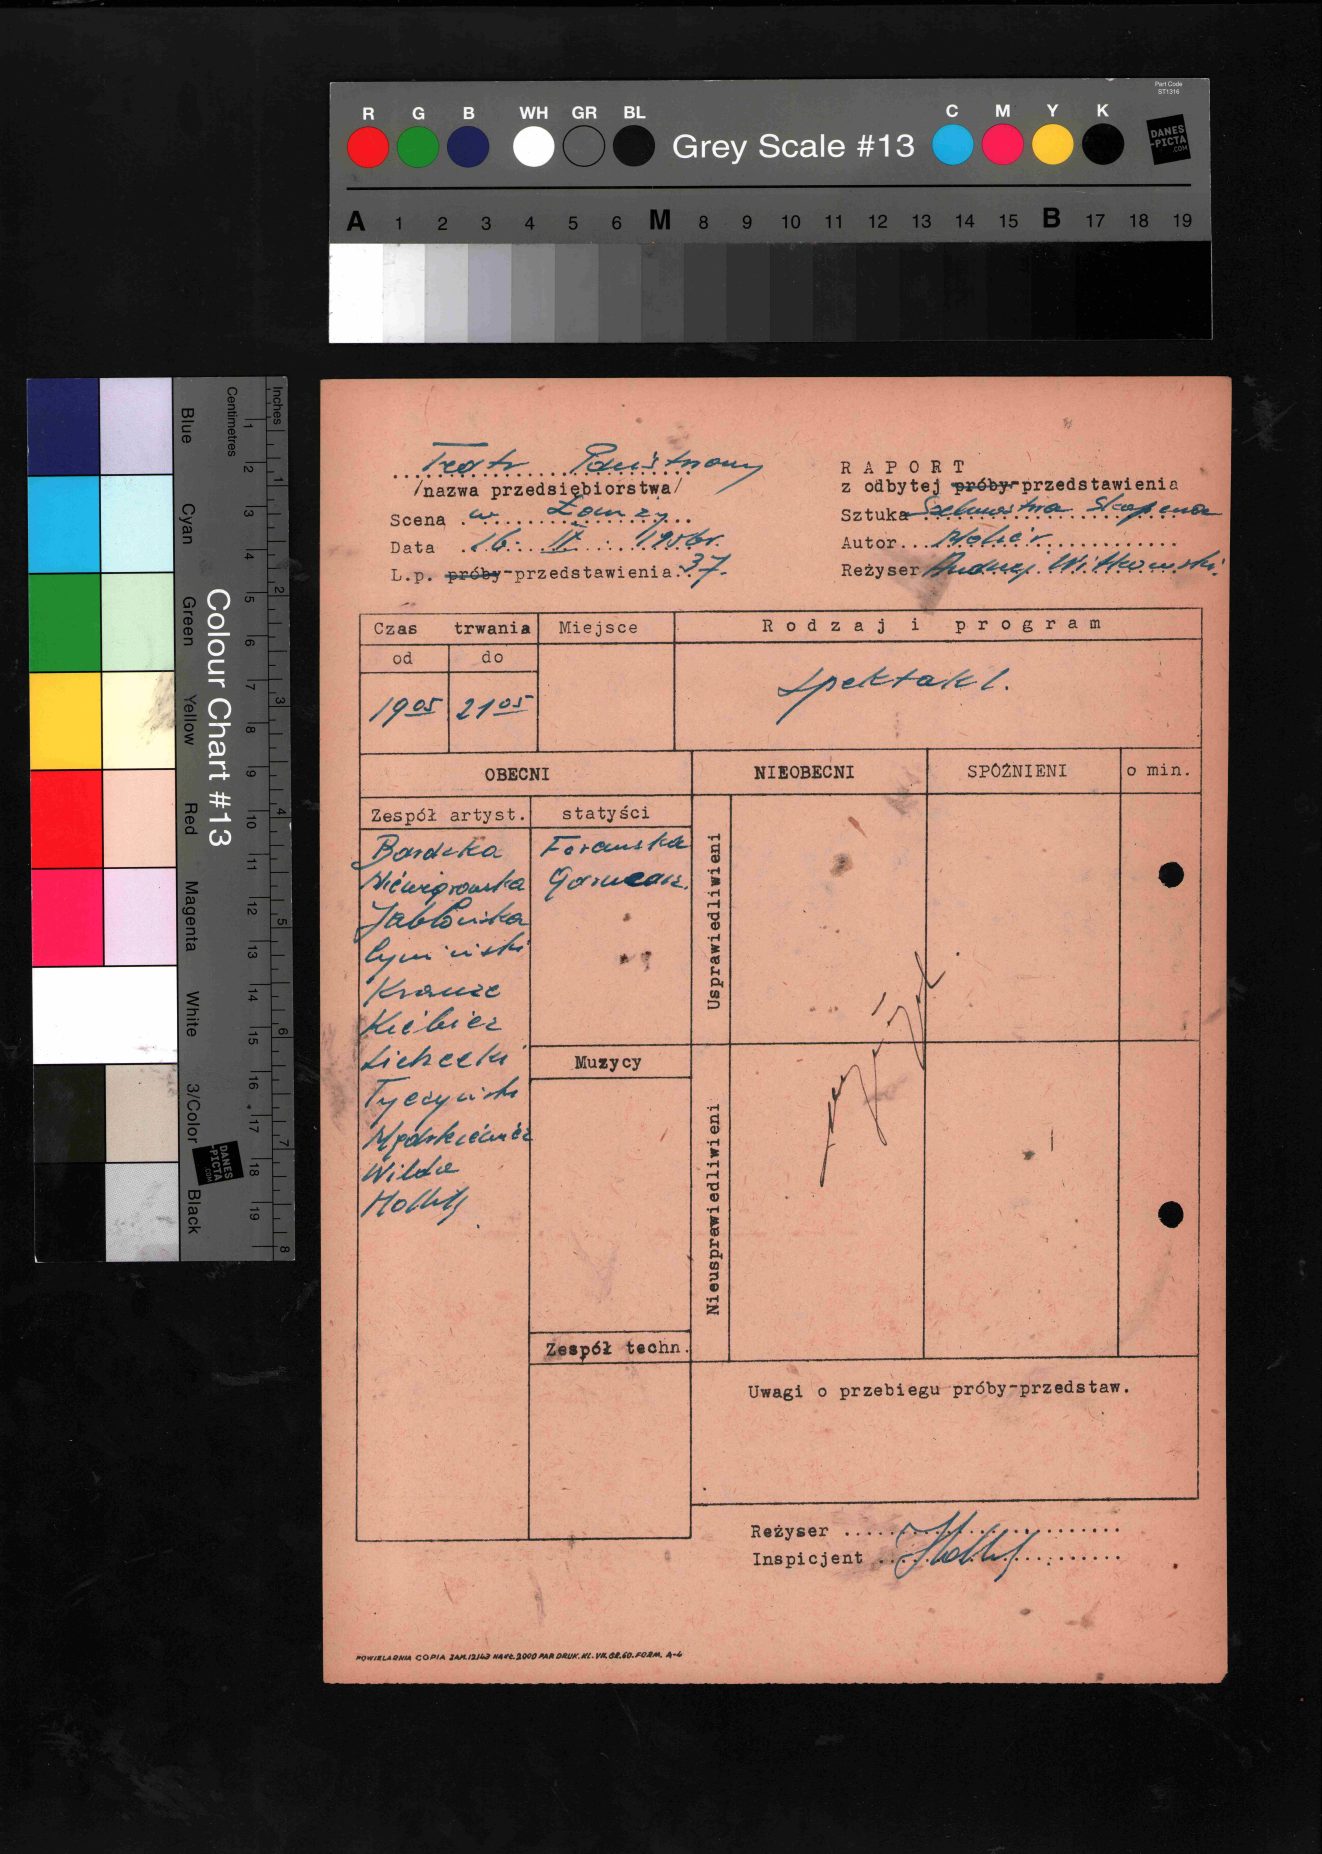 Part Code
ST1316
R G B WH GR BL Grey Scale #13 C M Y K
DANES
-PICTA
.COM
A 1 2 3 4 5 6 M 8 9 10 11 12 13 14 15 B 17 18 19
Inches
Centimetres
Colour Chart #13
Blue
Cyan
Green
Yellow
Red
Magenta
White
3/Color
Black
1 2 3 4 5 6 7 8 9 10 11 12 13 14 15 16 17 18 19
1 2 3 4 5 6 7 8
DANES
-PICTA
.COM
Teatr Państwowy
/nazwa przedsiębiorstwa/
Scena w Łomży
Data 16. 1956r.
L.p. próby-przedstawienia 37.
RAPORT
z odbytej próby-przedstawienia
Sztuka Szelmostwa Skapena
Autor Molier
Reżyser Andrzej Witkowski.
Czas trwania
Miejsce
Rodzaj i program
od
do
19 05
21 05
spektakl.
OBECNI
NIEOBECNI
SPÓŹNIENI
o min.
Zespół artyst.
statyści
Jabłońska
Cymiński
Krauze
Kiebicz
Tyczyński
Wilda
Usprawiedliwieni
Muzycy
Nieusprawiedliwieni
Zespół techn.
Uwagi o przebiegu próby-przedstaw.
Reżyser
Inspicjent
POWIELARNIA COPIA ZAM.